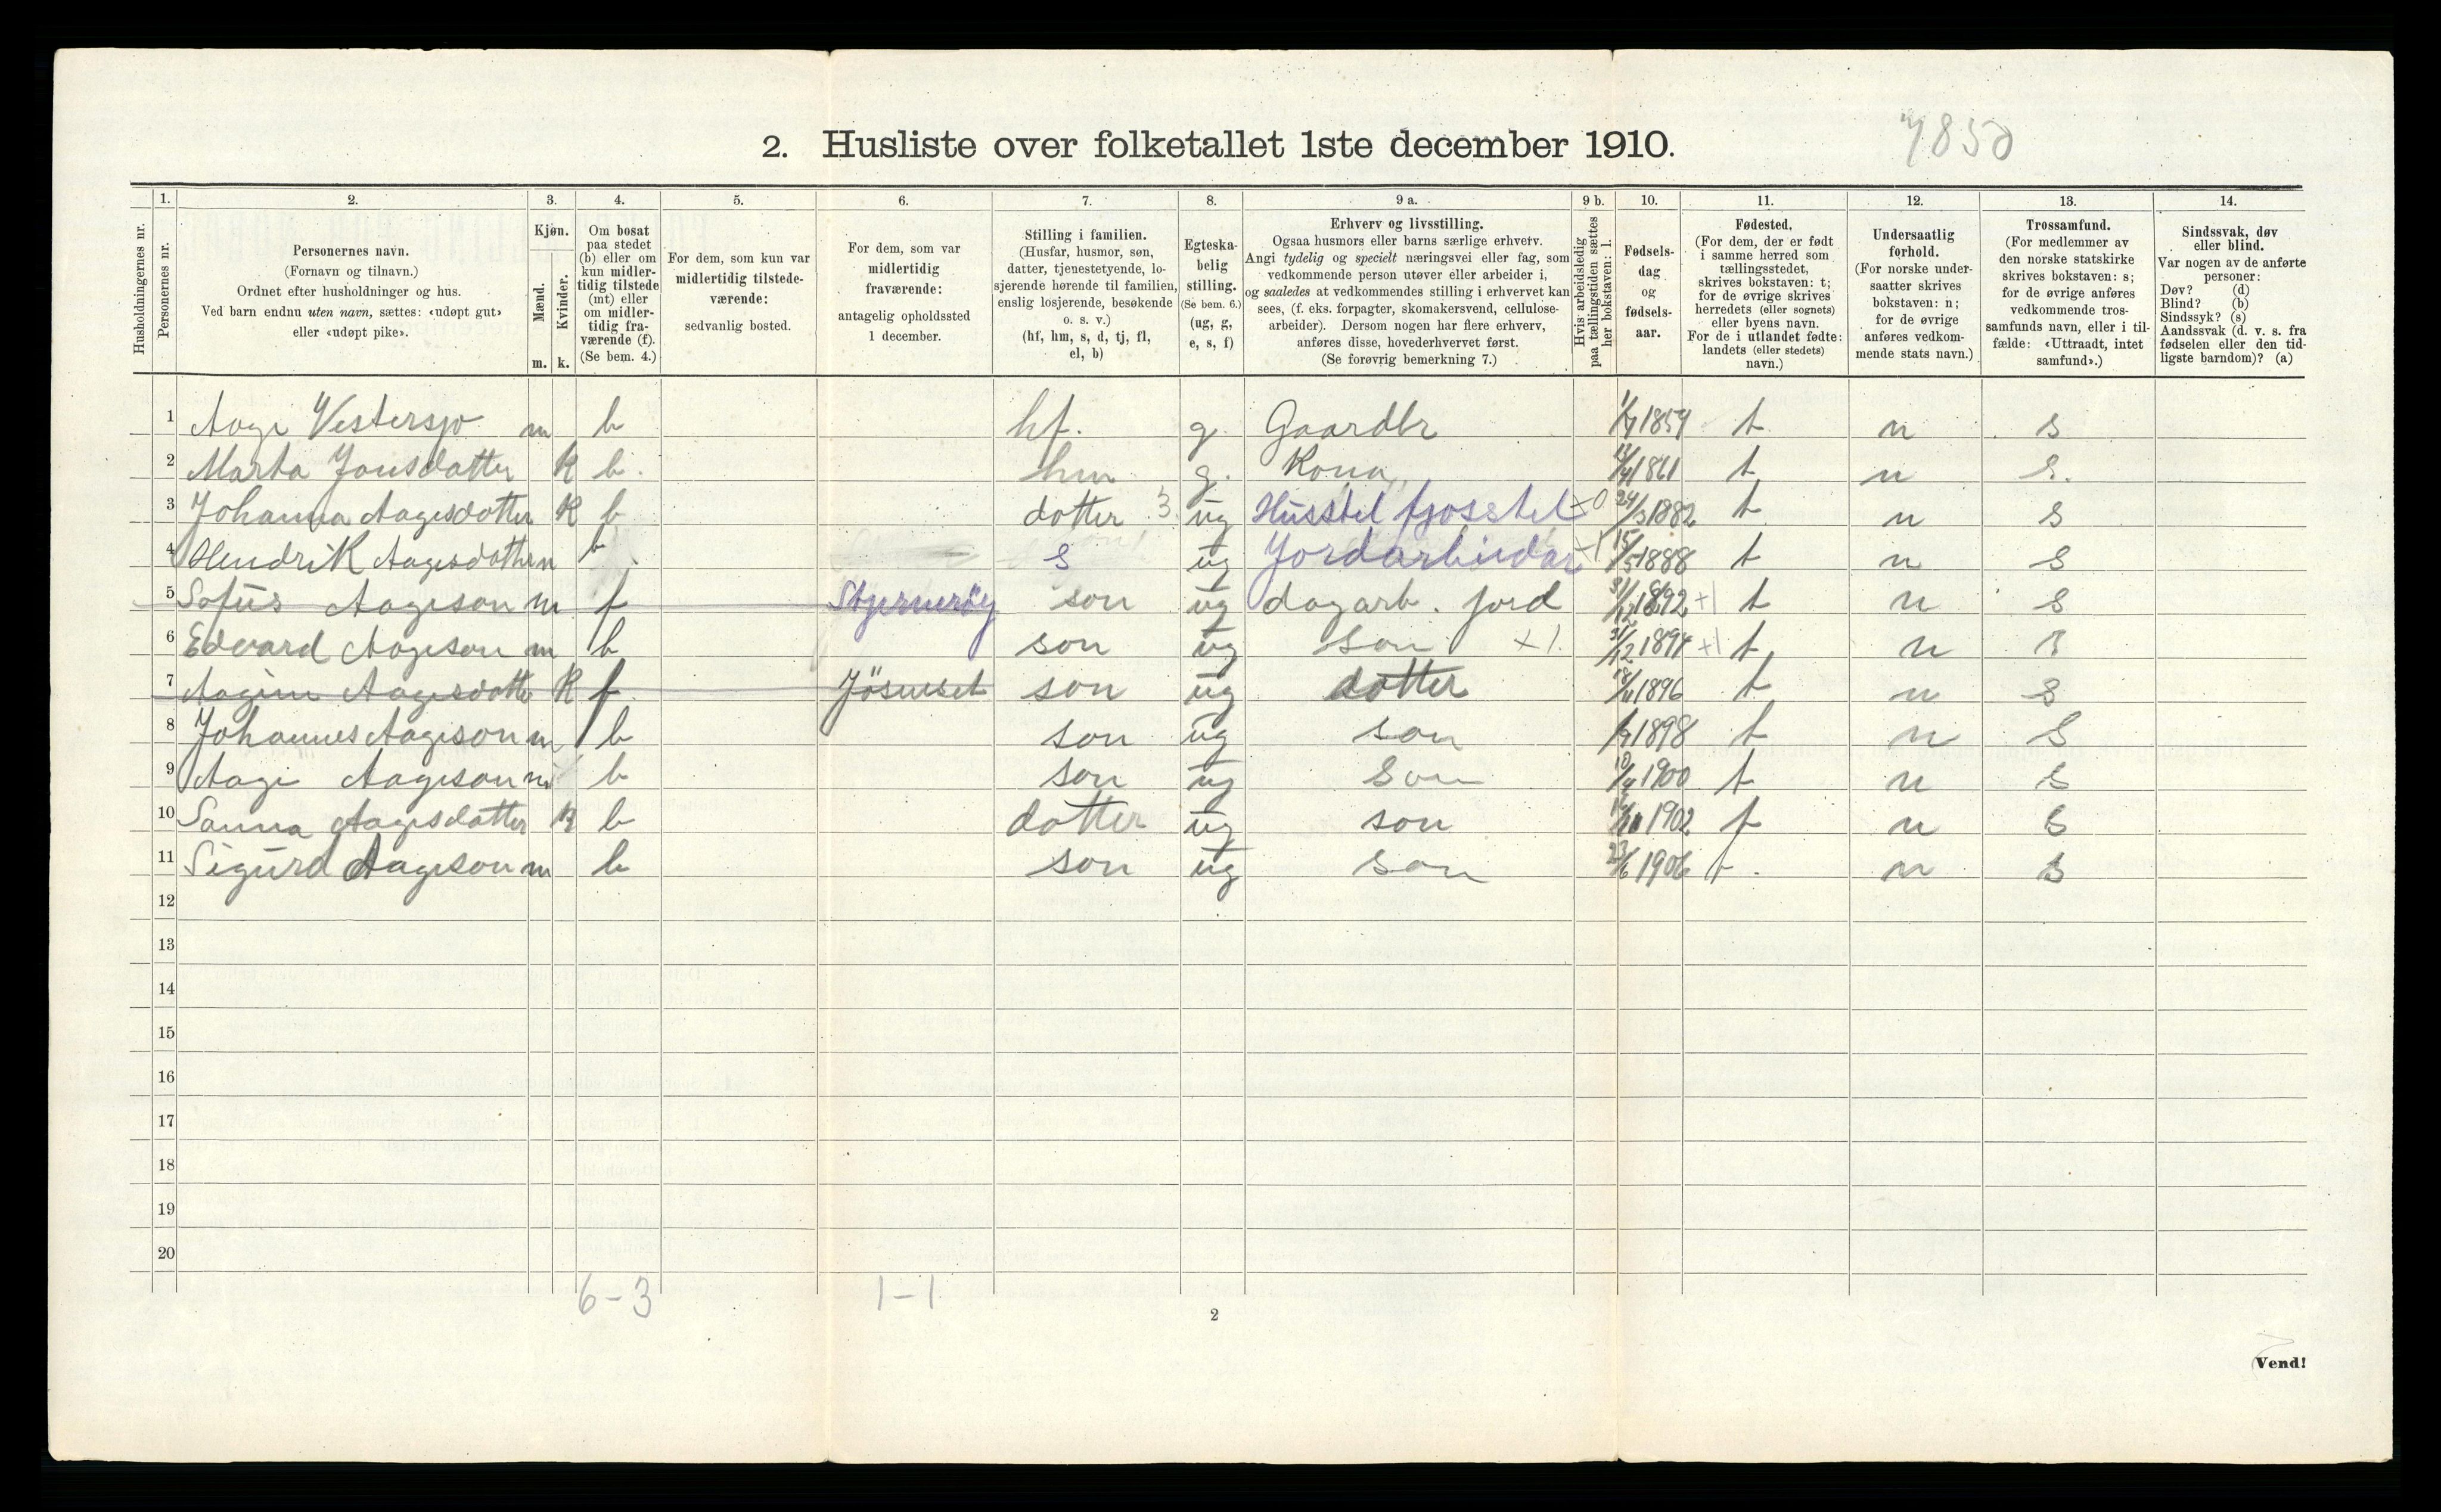 2. Husliste over folketallet 1ste december 1910.
7850
1. 2. 3. 4. 5. 6. 7. 8. 9 a. 9 b. 10. 11. 12. 13. 14.
Husholdningernes nr.
Personernes nr.
Personernes navn.
(Fornavn og tilnavn.)
Ordnet efter husholdninger og hus.
Ved barn endnu uten navn, sættes: «udøpt gut»
eller «udøpt pike».
Kjøn.
Mænd.
Kvinder.
m. k.
Om bosat
paa stedet
(b) eller om
kun midler-
tidig tilstede
(mt) eller
om midler-
tidig fra-
værende (f).
(Se bem. 4.)
For dem, som kun var
midlertidig tilstede-
værende:
sedvanlig bosted.
For dem, som var
midlertidig
fraværende:
antagelig opholdssted
1 december.
Stilling i familien.
(Husfar, husmor, søn,
datter, tjenestetyende, lo-
sjerende hørende til familien,
enslig losjerende, besøkende
o. s. v.)
(hf, hm, s, d, tj, fl,
el, b)
Egteska-
belig
stilling.
(Se bem. 6.)
(ug, g,
e, s, f)
Erhverv og livsstilling.
Ogsaa husmors eller barns særlige erhverv.
Angi tydelig og specielt næringsvei eller fag, som
vedkommende person utøver eller arbeider i,
og saaledes at vedkommendes stilling i erhvervet kan
sees, (f. eks. forpagter, skomakersvend, cellulose-
arbeider). Dersom nogen har flere erhverv,
anføres disse, hovederhvervet først.
(Se forøvrig bemerkning 7.)
Hvis arbeidsledig
paa tællingstiden sættes
her bokstaven: l.
Fødsels-
dag
og
fødsels-
aar.
Fødested.
(For dem, der er født
i samme herred som
tællingsstedet,
skrives bokstaven: t;
for de øvrige skrives
herredets (eller sognets)
eller byens navn.
For de i utlandet fødte:
landets (eller stedets)
navn.)
Undersaatlig
forhold.
(For norske under-
saatter skrives
bokstaven: n;
for de øvrige
anføres vedkom-
mende stats navn.)
Trossamfund.
(For medlemmer av
den norske statskirke
skrives bokstaven: s;
for de øvrige anføres
vedkommende tros-
samfunds navn, eller i til-
fælde: «Uttraadt, intet
samfund».)
Sindssvak, døv
eller blind.
Var nogen av de anførte
personer:
Døv? (d)
Blind? (b)
Sindssyk? (s)
Aandssvak (d. v. s. fra
fødselen eller den tid-
ligste barndom)? (a)
1 Aage Vestersjo m b hf. g. Gaardbr 1859 t n s
2 Marta Jonsdatter K b. hm g. Kona 1861 t n s.
3 Johanna Aagesdotter K b dotter 3 ug Husstel fjosstel x0 24/3 1882 t n s
4 Hendrik Aagesdotter m b s ug Jordarbiedar x1 15/5 1888 t n s
5 Sofus Aageson m f Stjernerøy son ug dagarb. jord 31/12 1892 +1 t n s
6 Edvard Aageson m b son ug son x1. 31/12 1894 +1 t n s
7 Aagine Aagesdotte K f Jösneset son ug dotter 1896 t n s
8 Johannes Aageson m b son ug son 1898 t n s
9 Aage Aageson m b son ug son 1900 t n s
10 Sanna Aagesdatter K b dotter ug son 1902 t n s
11 Sigurd Aageson m b son ug son 23/6 1906 t. n s
12
13
14
15
16
17
18
19
20
6-3 1-1
2
Vend!